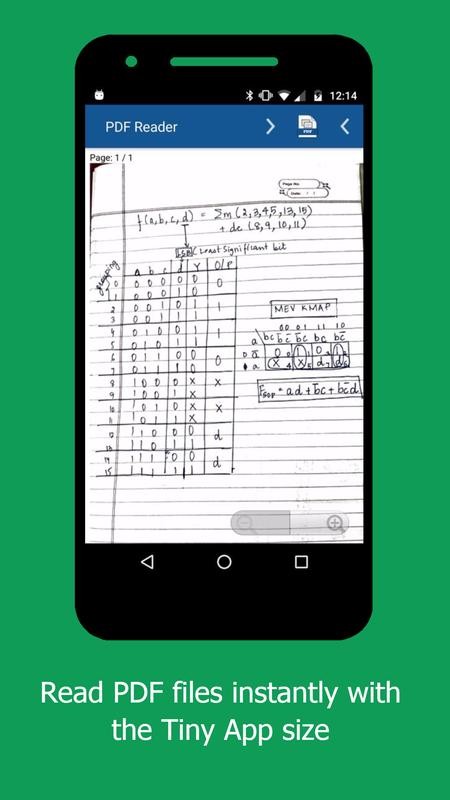 12:14
PDF Reader
PDF
Page: 1 / 1
Page No.
Date: / /
f(a,b,c,d) = Σm(2,3,4,5,13,15)
+ dc (8,9,10,11)
LSB (Least Significant bit
grouping
a b c d Y O/P
0 0 0 0 0 0 0
1 0 0 0 1 0
2 0 0 1 0 1 1
3 0 0 1 1 1
4 0 1 0 0 1 1
5 0 1 0 1 1
6 0 1 1 0 0 0
7 0 1 1 1 0
8 1 0 0 0 x x
9 1 0 0 1 x
10 1 0 1 0 x x
11 1 0 1 1 x
12 1 1 0 0 0 d
13 1 1 0 1 1
14 1 1 1 0 0 d
15 1 1 1 1 1
MEV KMAP
00 01 11 10
a bc b̄c̄ b̄c bc bc̄
0 ā 0 0 1 1 0 3 1 2
1 a x 4 x 5 d 7 d 6
Fsop = ad + b̄c + bc̄d
Read PDF files instantly with
the Tiny App size